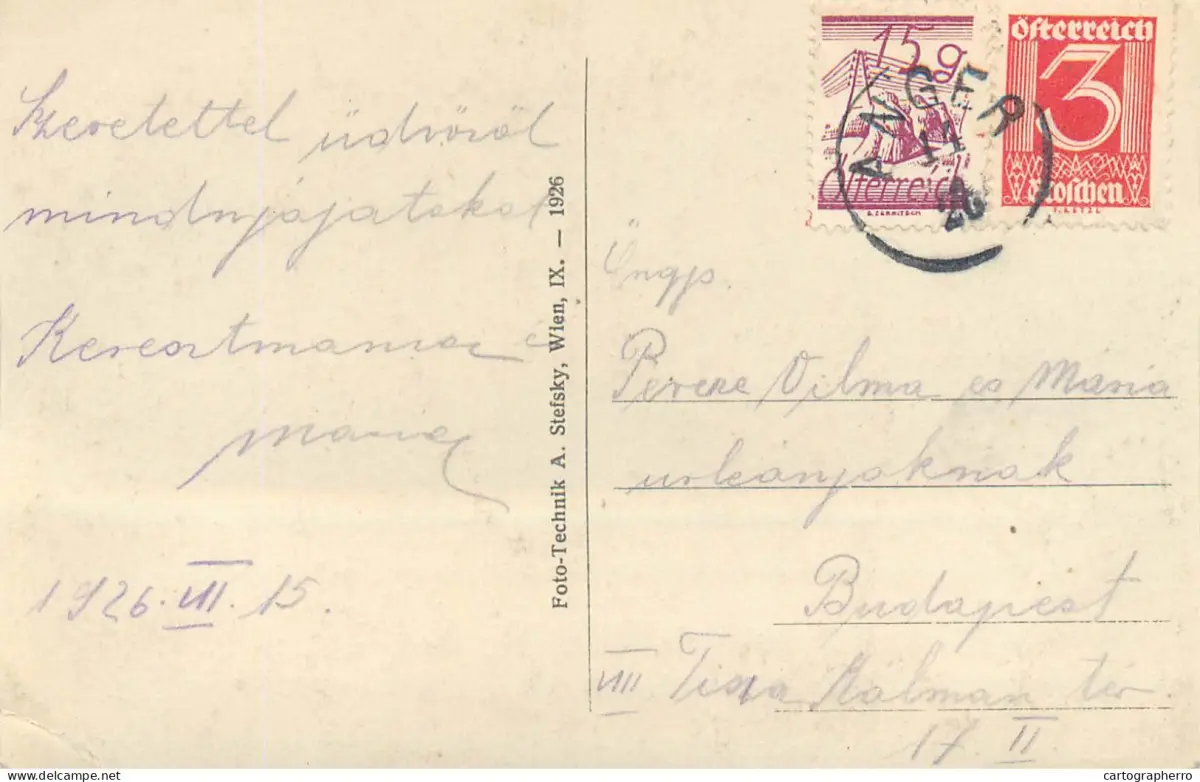 Szeretettel üdvözöl
mindnyájatokat
Keresztmama
Maria
1926. VIII. 15.
Foto-Technik A. Stefsky, Wien, IX. — 1926
15 g
Österreich
Österreich
3
Groschen
ANGER
26
Perere Vilma es Maria
urleanyoknak
Budapest
VIII Tisza Kalman ter
17. II
cartographerro